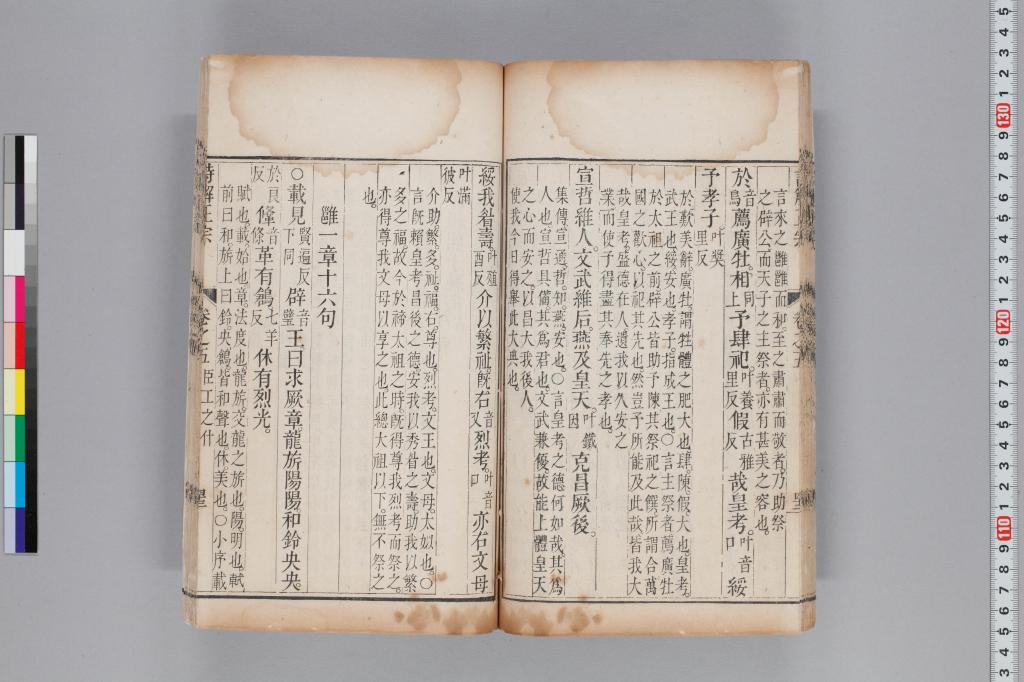 言來之雝雝而和至之肅肅而敬者乃助祭
之辟公而天子之主祭者亦有甚美之容也
於音烏薦廣牡相上同予肆祀叶養里反假古雅反哉皇考叶音口綏
予孝子叶奬里反
於歎美辭廣牡謂牡體之肥大也肆陳假大也皇考
武王也綏安也孝子指成王也○言主祭者薦廣牡
於太祖之前辟公皆助予陳其祭祀之饌所謂合萬
國之歡心以祀其先也然豈予所能及此哉皆我大
哉皇考盛德在人遺我以久安之
業而使予得盡其奉先之孝也
宣哲維人文武維后燕及皇天叶鐵因克昌厥後
集傳宣通哲知燕安也○言皇考之德何如哉其爲
人也宣哲具備其爲君也文武兼優故能上體皇天
之心而安之以昌大我後人
使我今日得舉此大典也
綏我眉壽叶殖酉反介以繁祉旣右音又烈考叶音口亦右文母
叶滿彼反
介助繁多祉福右尊也烈考文王也文母太姒也○
言旣賴皇考昌後之德安我以秀眉之壽助我以繁
多之福故今於禘太祖之時旣得尊我烈考而祭之
亦得尊我文母以享之也此總大祖以下無不祭之
也
雝一章十六句
○載見賢遍反下同辟音璧王曰求厥章龍旂陽陽和鈴央央
於良反鞗音條革有鶬七羊反休有烈光
賦也載始也章法度也龍旂交龍之旂也陽明也軾
前曰和旂上曰鈴央鶬皆和聲也休美也○小序載
詩解正宗 卷之五 臣工之什